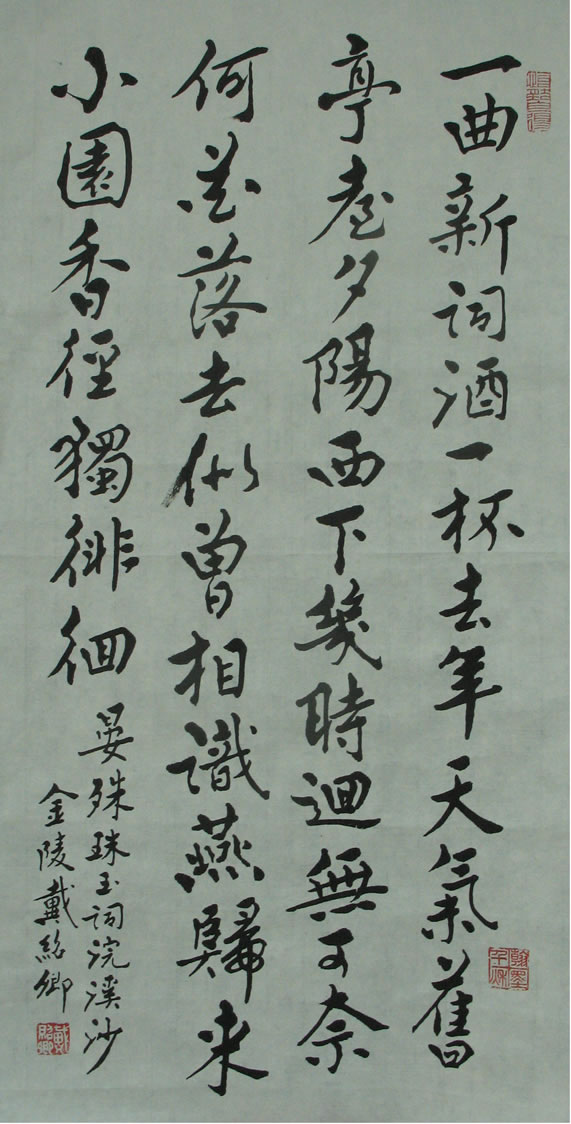 一曲新詞酒一杯去年天氣舊
亭臺夕陽西下幾時迴無可奈
何花落去似曾相識燕歸来
小園香徑獨徘徊
晏殊珠玉詞浣溪沙
金陵戴紹卿